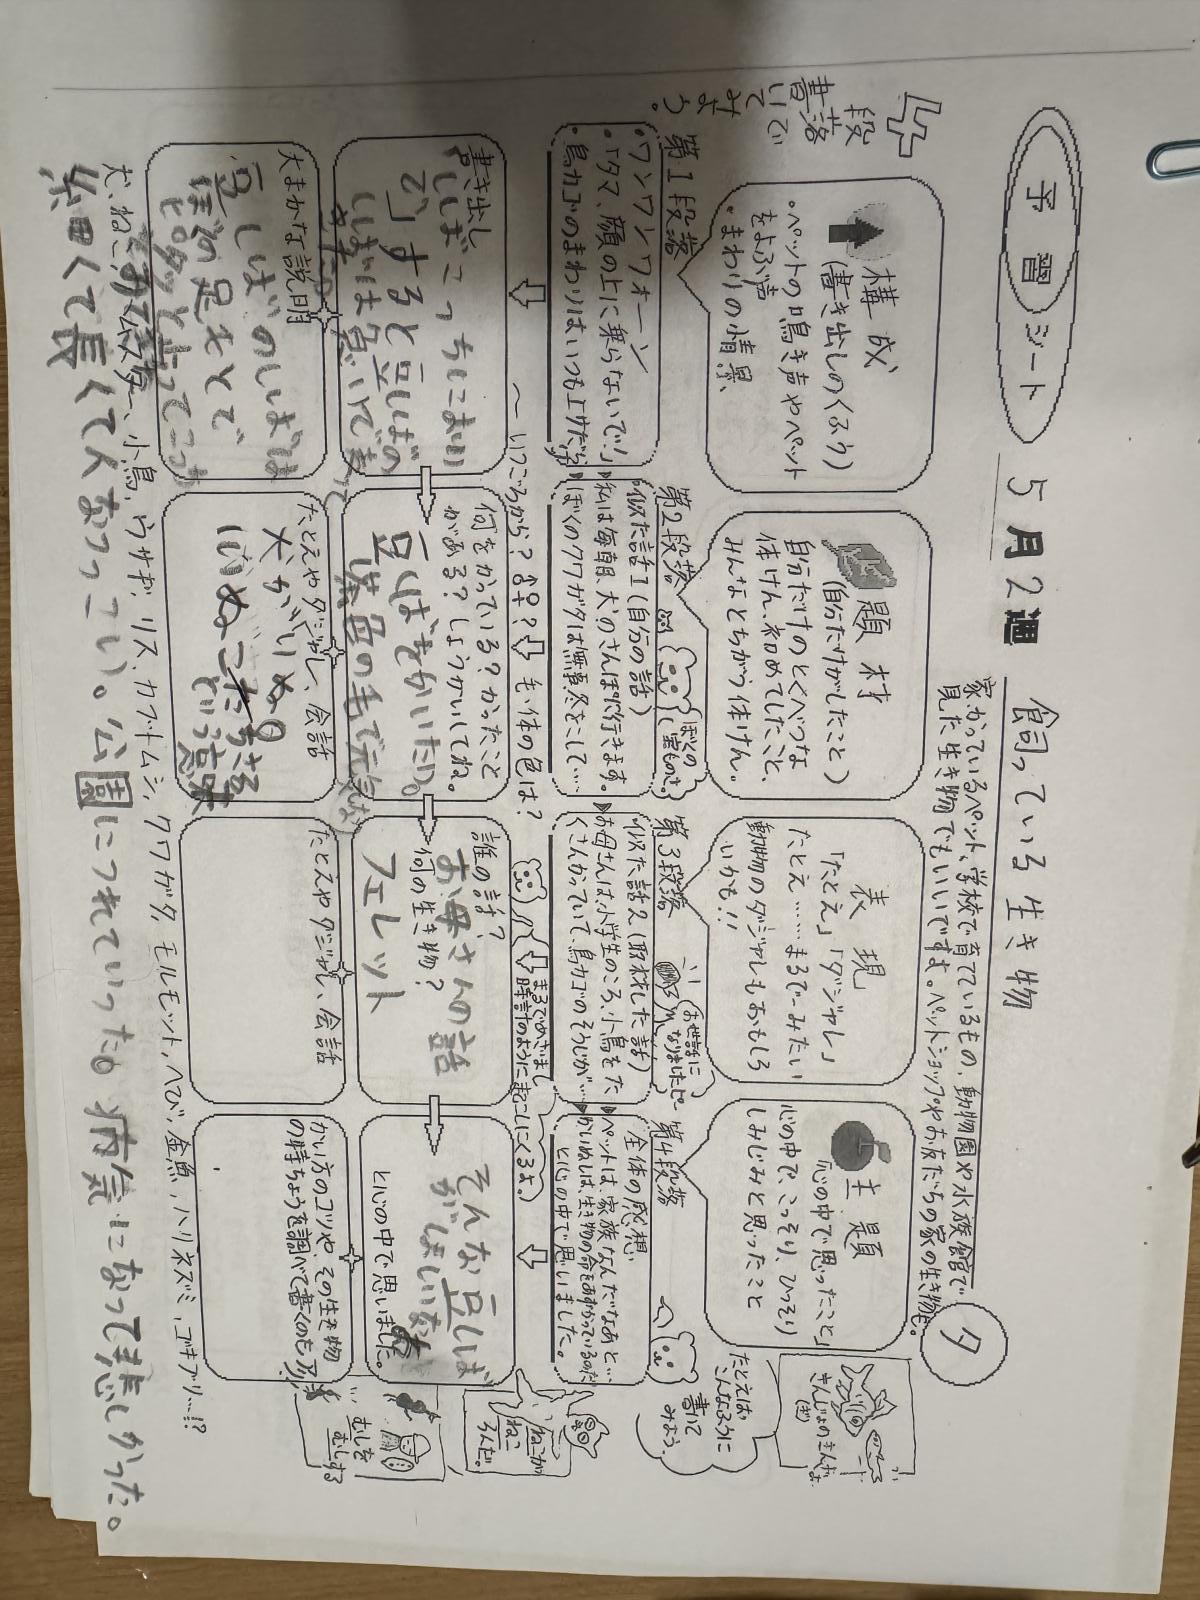 予習シート
5月2週
飼っている生き物
家でかっているペット、学校で育てているもの、動物園や水族館で
見た生き物でもいいですよ。ペットショップやお友だちの家の生き物も。
タ
段落で
書いて
みよう。
構成
(書き出しのくふう)
・ペットの鳴き声やペット
をよぶ声
・まわりの情景
題材
(自分だけがしたこと)
自分だけのとくべつな
体けん、初めてしたこと、
みんなとちがう体けん。
表現
「たとえ」「ダジャレ」
たとえ……まるで〜みたい
動物のダジャレもおもしろ
いかも!!
主題
「心の中で思ったこと」
心の中で、こっそり、ひっそり
しみじみと思ったこと
きんじょのきんぎょ
たとえば
こんなふうに
書いて
みよう。
第1段落
・ワンワンワォーン
・「タマ、顔の上に乗らないで!」
・鳥カゴのまわりはいつも
第2段落
ぼくの
宝ものさ。
似た話1(自分の話)
私は毎朝、犬のさんぽに行きます。
ぼくのクワガタは無事冬をこして…
第3段落
お世話に
なりましたピー
似た話2(取材した話)
お母さんは、小学生のころ、小鳥をた
くさんかっていて、鳥カゴのそうじが……
第4段落
全体の感想
ペットは、家族なんだなあと…
かいぬしは、生き物の命をあずかっているのだ
と心の中で思いました。
〜いつごろから?♂♀?
毛・体の色は?
まるでめざまし
時計のように起こしにくるよ。
ねこが
ねこ
ろんだ。
書き出し
しばこっちにおい
で」すると豆しばの
しばは急いで走って
きた
何をかっている?かったこと
がある?しょうかいしてね。
豆しばをかいたい。
茶色の毛で元気な
誰の話?
何の生き物?
お母さんの話
フェレット
そんな豆しば
がほしいなあ
と心の中で思いました。
大まかな説明
豆しばのしばは
足もとで
ピタッと止まって
たとえやダジャレ、会話
犬がいぬ
という意味
たとえやダジャレ、会話
かい方のコツや、その生き物
の特ちょうを調べて書くのも
むしを
むしする
犬、ねこ、ハムスター、小鳥、ウサギ、リス、カブトムシ、クワガタ、モルモット、ヘビ、金魚、ハリネズミ、ゴキブリ…!?
糸田くて長くて人なつっこい。公園につれていった。病気になって悲しかった。